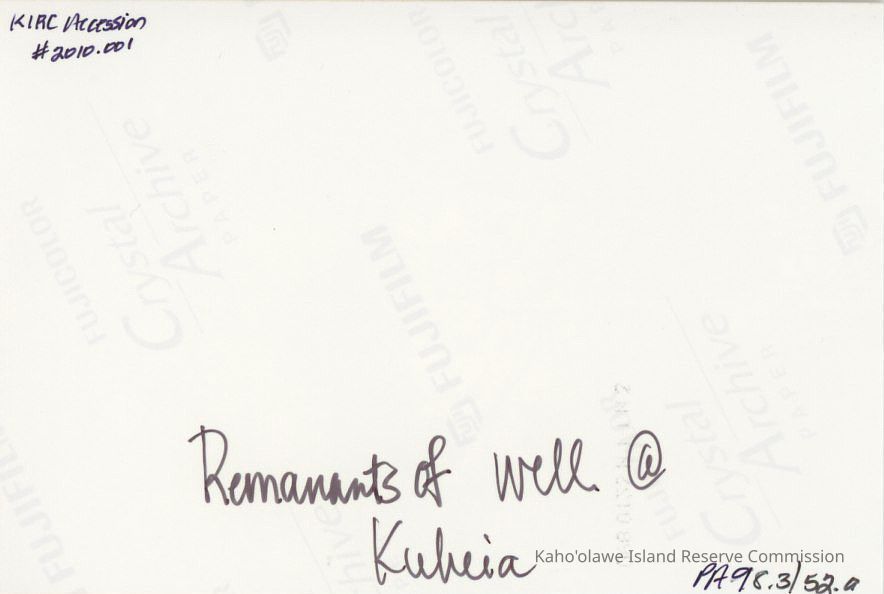 KIRC Accession
#2010.001
FUJICOLOR
Crystal
Archive
PAPER
FUJIFILM
FUJICOLOR
Crystal
Archive
PAPER
FUJIFILM
FUJICOLOR
Crystal
Archive
PAPER
FUJIFILM
Remanants of well @
Kuheia
Kaho'olawe Island Reserve Commission
PA98.3/52.a